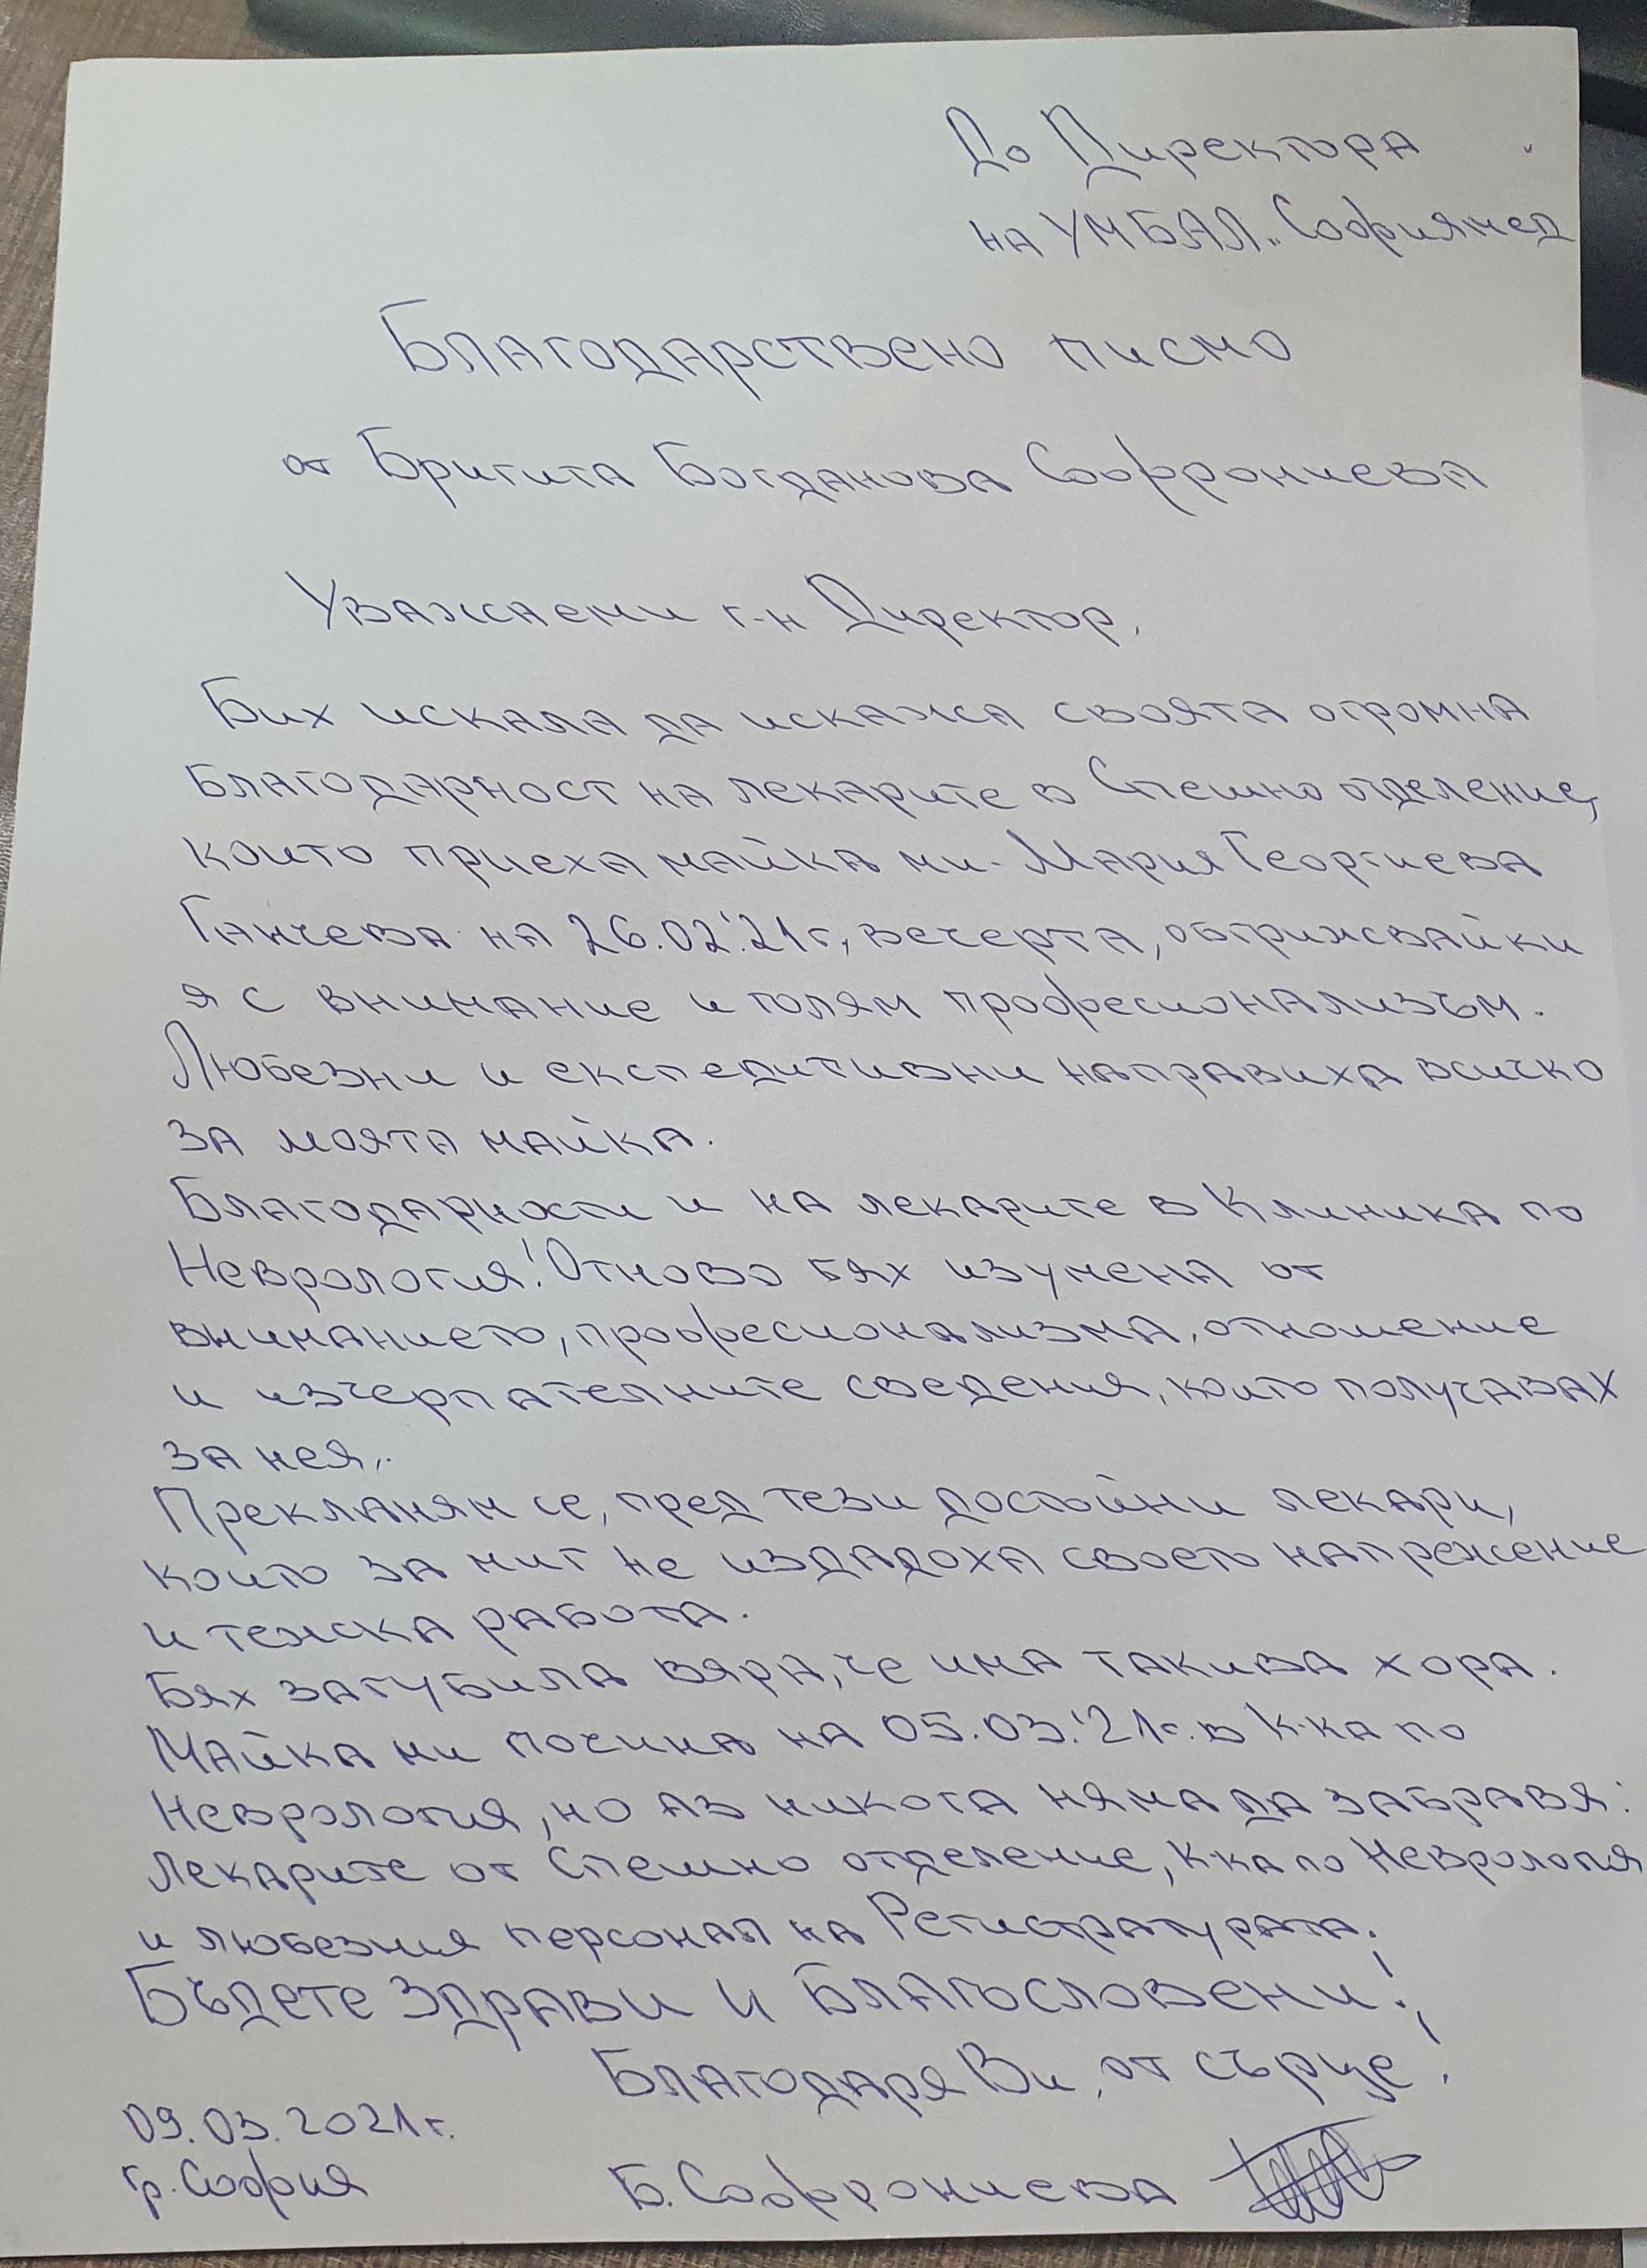 До Директора
на УМБАЛ „Софиямед
Благодарствено писмо
от Бригита Богданова Софрониева
Уважаеми г-н Директор,
Бих искала да искажа своята огромна
благодарност на лекарите в Спешно отделение,
които приеха майка ми - Мария Георгиева
Ганчева на 26.02.'21г, вечерта, обгрижвайки
я с внимание и голям професионализъм.
Любезни и експедитивни направиха всичко
за моята майка.
Благодарности и на лекарите в Клиника по
Неврология! Отново бях изумена от
вниманието, професионализма, отношение
и изчерпателните сведения, които получавах
за нея.
Прекланям се, пред тези достойни лекари,
които за миг не издадоха своето напрежение
и тежка работа.
Бях загубила вяра, че има такива хора.
Майка ми почина на 05.03.'21г. в К-ка по
Неврология, но аз никога няма да забравя:
лекарите от Спешно отделение, К-ка по Неврология
и любезния персонал на Регистратурата.
Бъдете здрави и благословени!
Благодаря Ви, от сърце!
09.03.2021г.
гр. София
Б. Софрониева